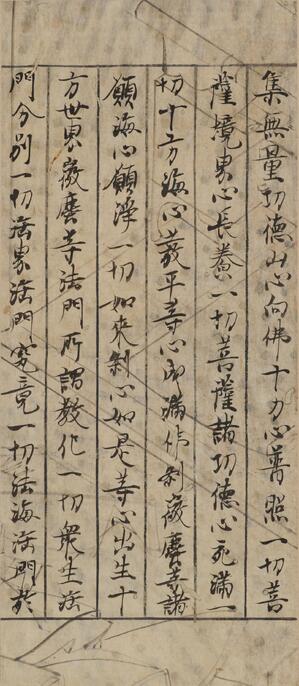 集無量功德山心向佛十力心普照一切菩
薩境界心長養一切菩薩諸功德心充滿一
切十方海心嚴平等心即滿佛刹微塵等諸
願海心願淨一切如來刹心如是等心出生十
方世界微塵等法門所謂教化一切衆生法
門分別一切法界法門究竟一切法海法門於